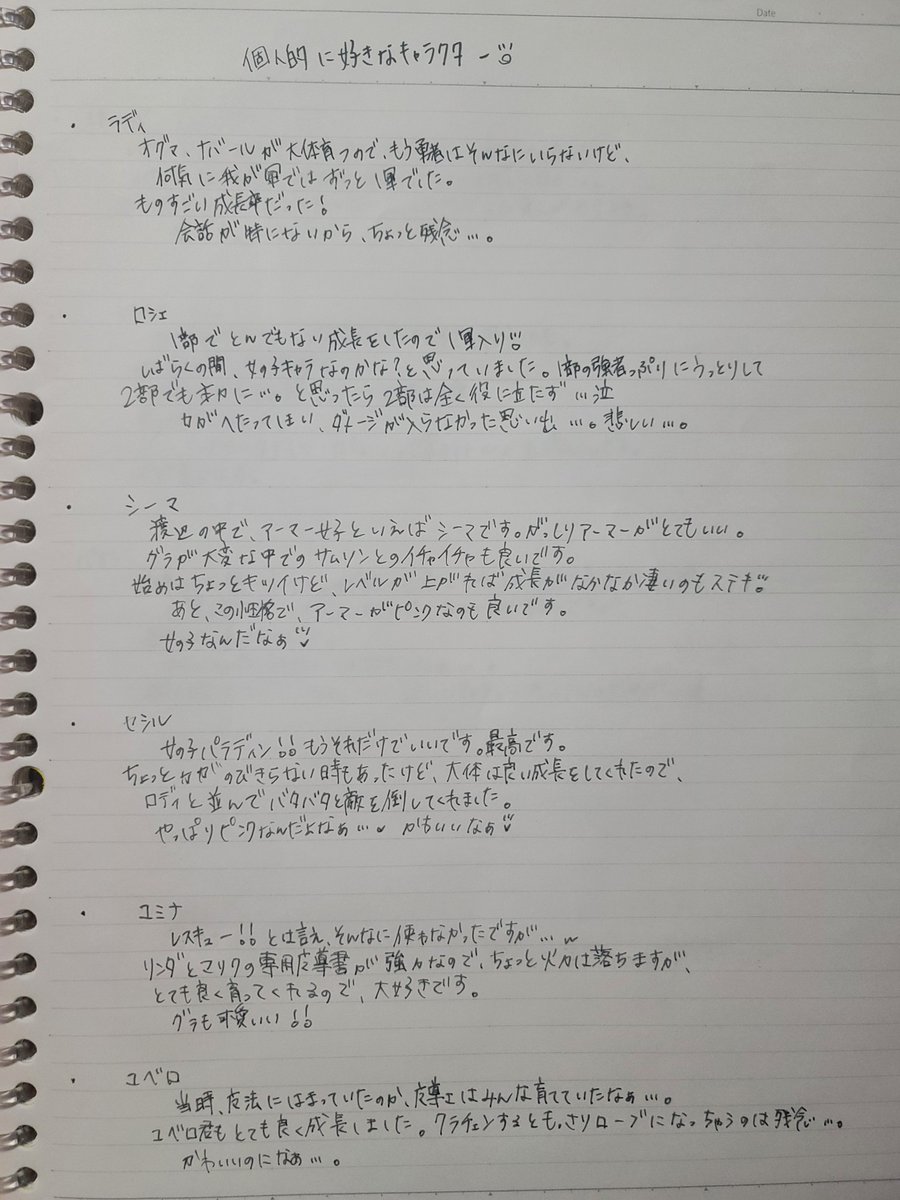 Date
個人的に好きなキャラクター
・ラディ
オグマ、ナバールが大体育つので、もう勇者はそんなにいらないけど、
何気に我が軍ではずっと1軍でした。
ものすごい成長率だった!
会話が特にないから、ちょっと残念…。
・ロシェ
1部でとんでもない成長をしたので1軍入り!!
しばらくの間、女の子キャラなのかな?と思っていました。1部の強者っぷりにうっとりして
2部でも主力に…。と思ったら2部は全く役に立たず…泣
力がへたってほい、ダメージが入らなかった思い出…。悲しい…。
・シーマ
渡辺の中で、アーマー女子といえばシーマです。がっしりアーマーがとてもいい。
グラが大変な中でのサムソンとのイチャイチャも良いです。
始めはちょっとキツイけど、レベルが上がれば成長がなかなか凄いのもステキ!!
あと、この性格で、アーマーがピンクなのも良いです。
女の子なんだなぁ
・セシル
女の子パラディン!!もうそれだけでいいです。最高です。
ちょっと力がのびきらない時もあったけど、大体は良い成長をしてくれたので、
ロディと並んでバタバタと敵を倒してくれました。
やっぱりピンクなんだよなぁ… かわいいなぁ
・ユミナ
レスキュー!!とは言え、そんなに使わなかったですが…
リンダとマリクの専用魔導書が強力なので、ちょっと火力は落ちますが、
とても良く育ってくれるので、大好きです。
グラも可愛いい!!
・ユベロ
当時、魔法にはまっていたのか、魔導士はみんな育てていたなぁ…。
ユベロ君もとても良く成長しました。クラチェンするともっさりローブになっちゃうのは残念…。
かわいいのになぁ…。